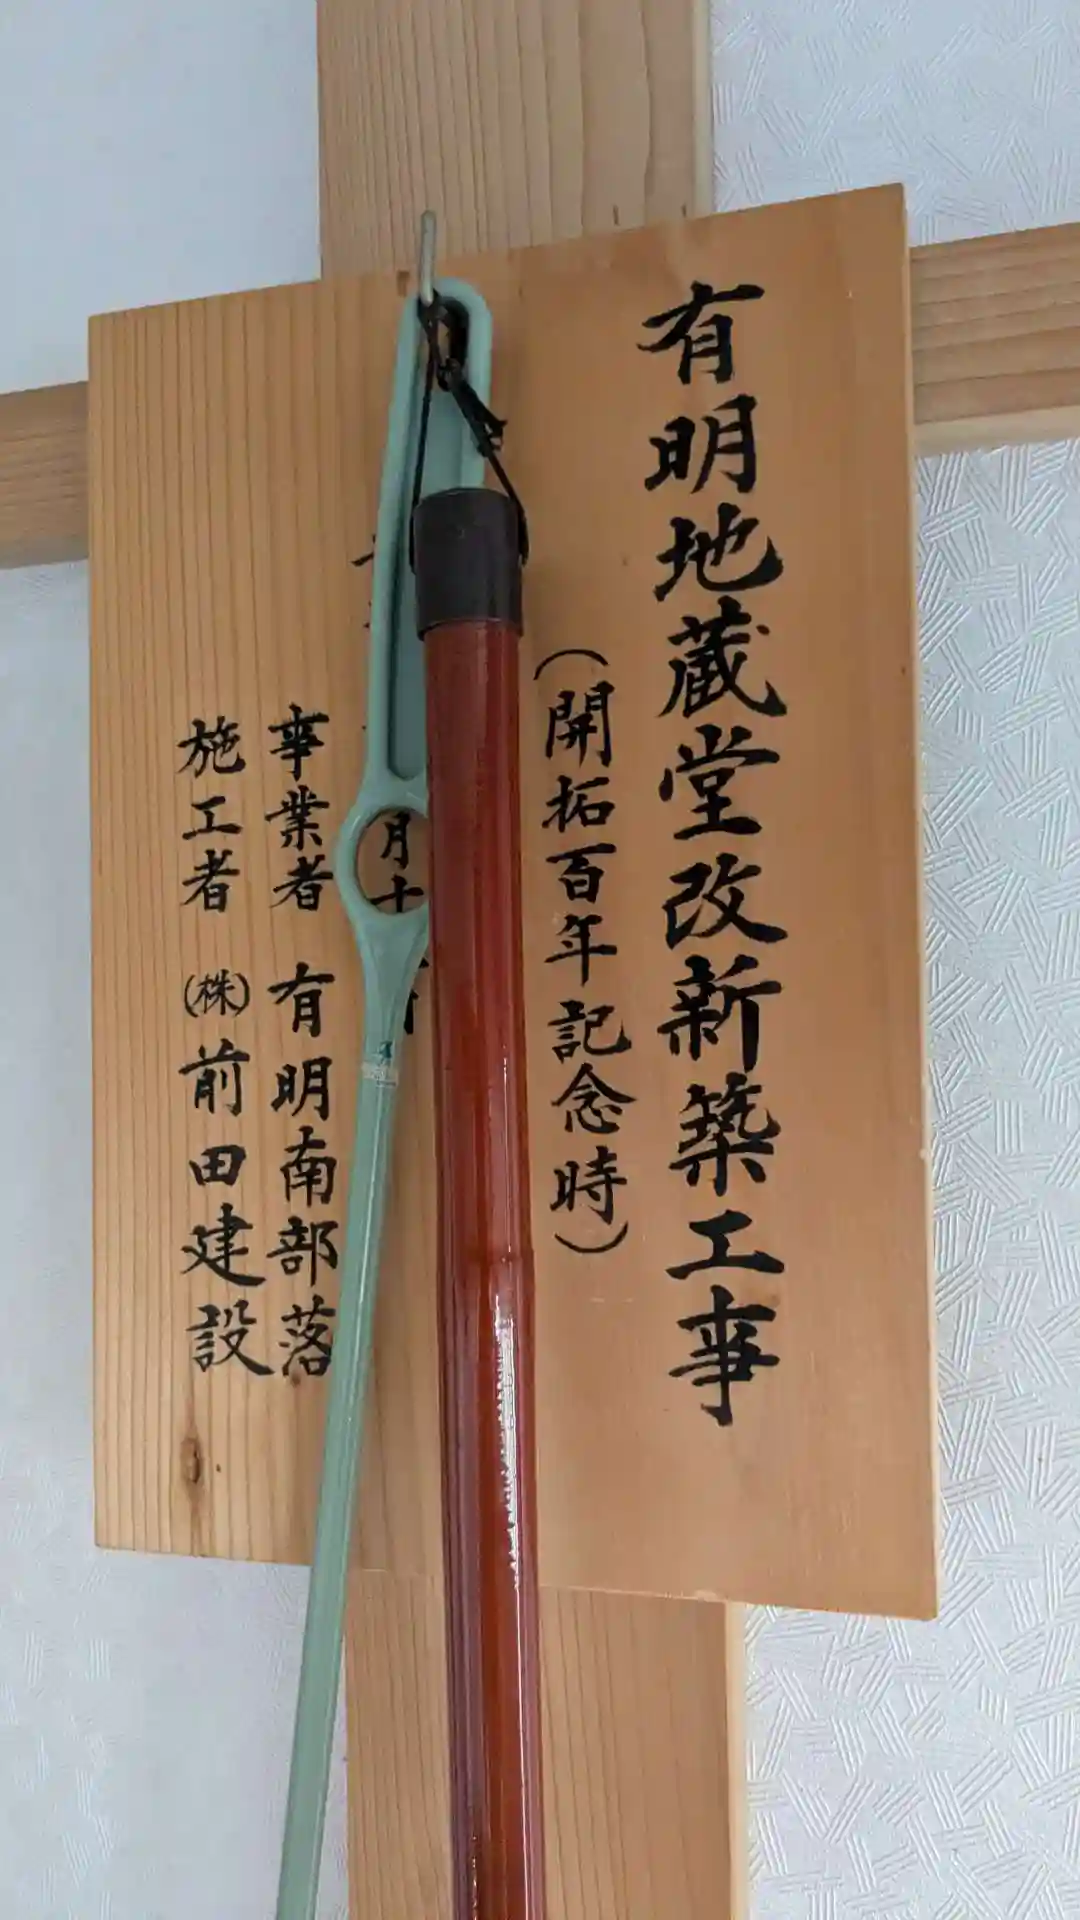 有明地蔵堂改新築工事
(開拓百年記念時)
月十
事業者 有明南部落
施工者 ㈱前田建設